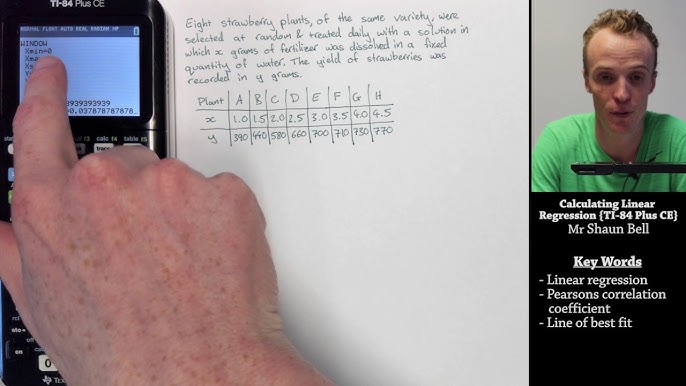 TI-84 Plus CE
NORMAL FLOAT AUTO REAL RADIAN MP
WINDOW
Xmin=0
939393939
0.037878787878
Eight strawberry plants, of the same variety, were
selected at random & treated daily with a solution in
which x grams of fertilizer was dissolved in a fixed
quantity of water. The yield of strawberries was
recorded in y grams.
Plant A B C D E F G H
x 1.0 1.5 2.0 2.5 3.0 3.5 4.0 4.5
y 390 440 580 660 700 710 730 770
Calculating Linear
Regression {TI-84 Plus CE}
Mr Shaun Bell
Key Words
- Linear regression
- Pearsons correlation
coefficient
- Line of best fit